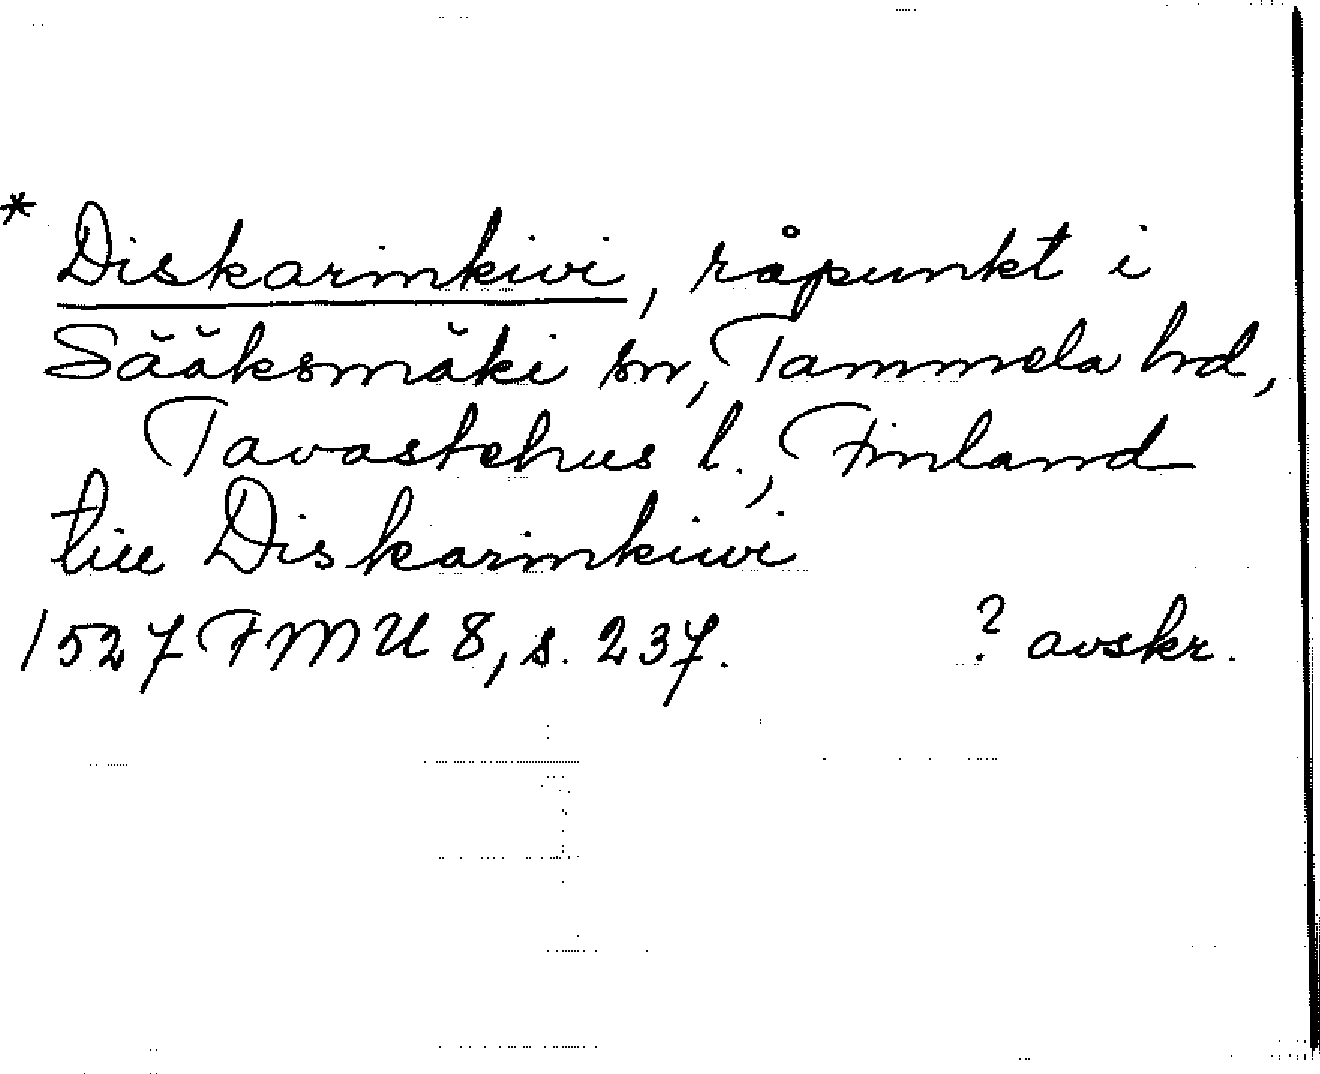 * Diskarinkivi, råpunkt i
Sääksmäki sn, Tammela hrd,
Tavastehus l., Finland
till Diskarinkiwi
1527 FMU 8, s. 237. ? avskr.